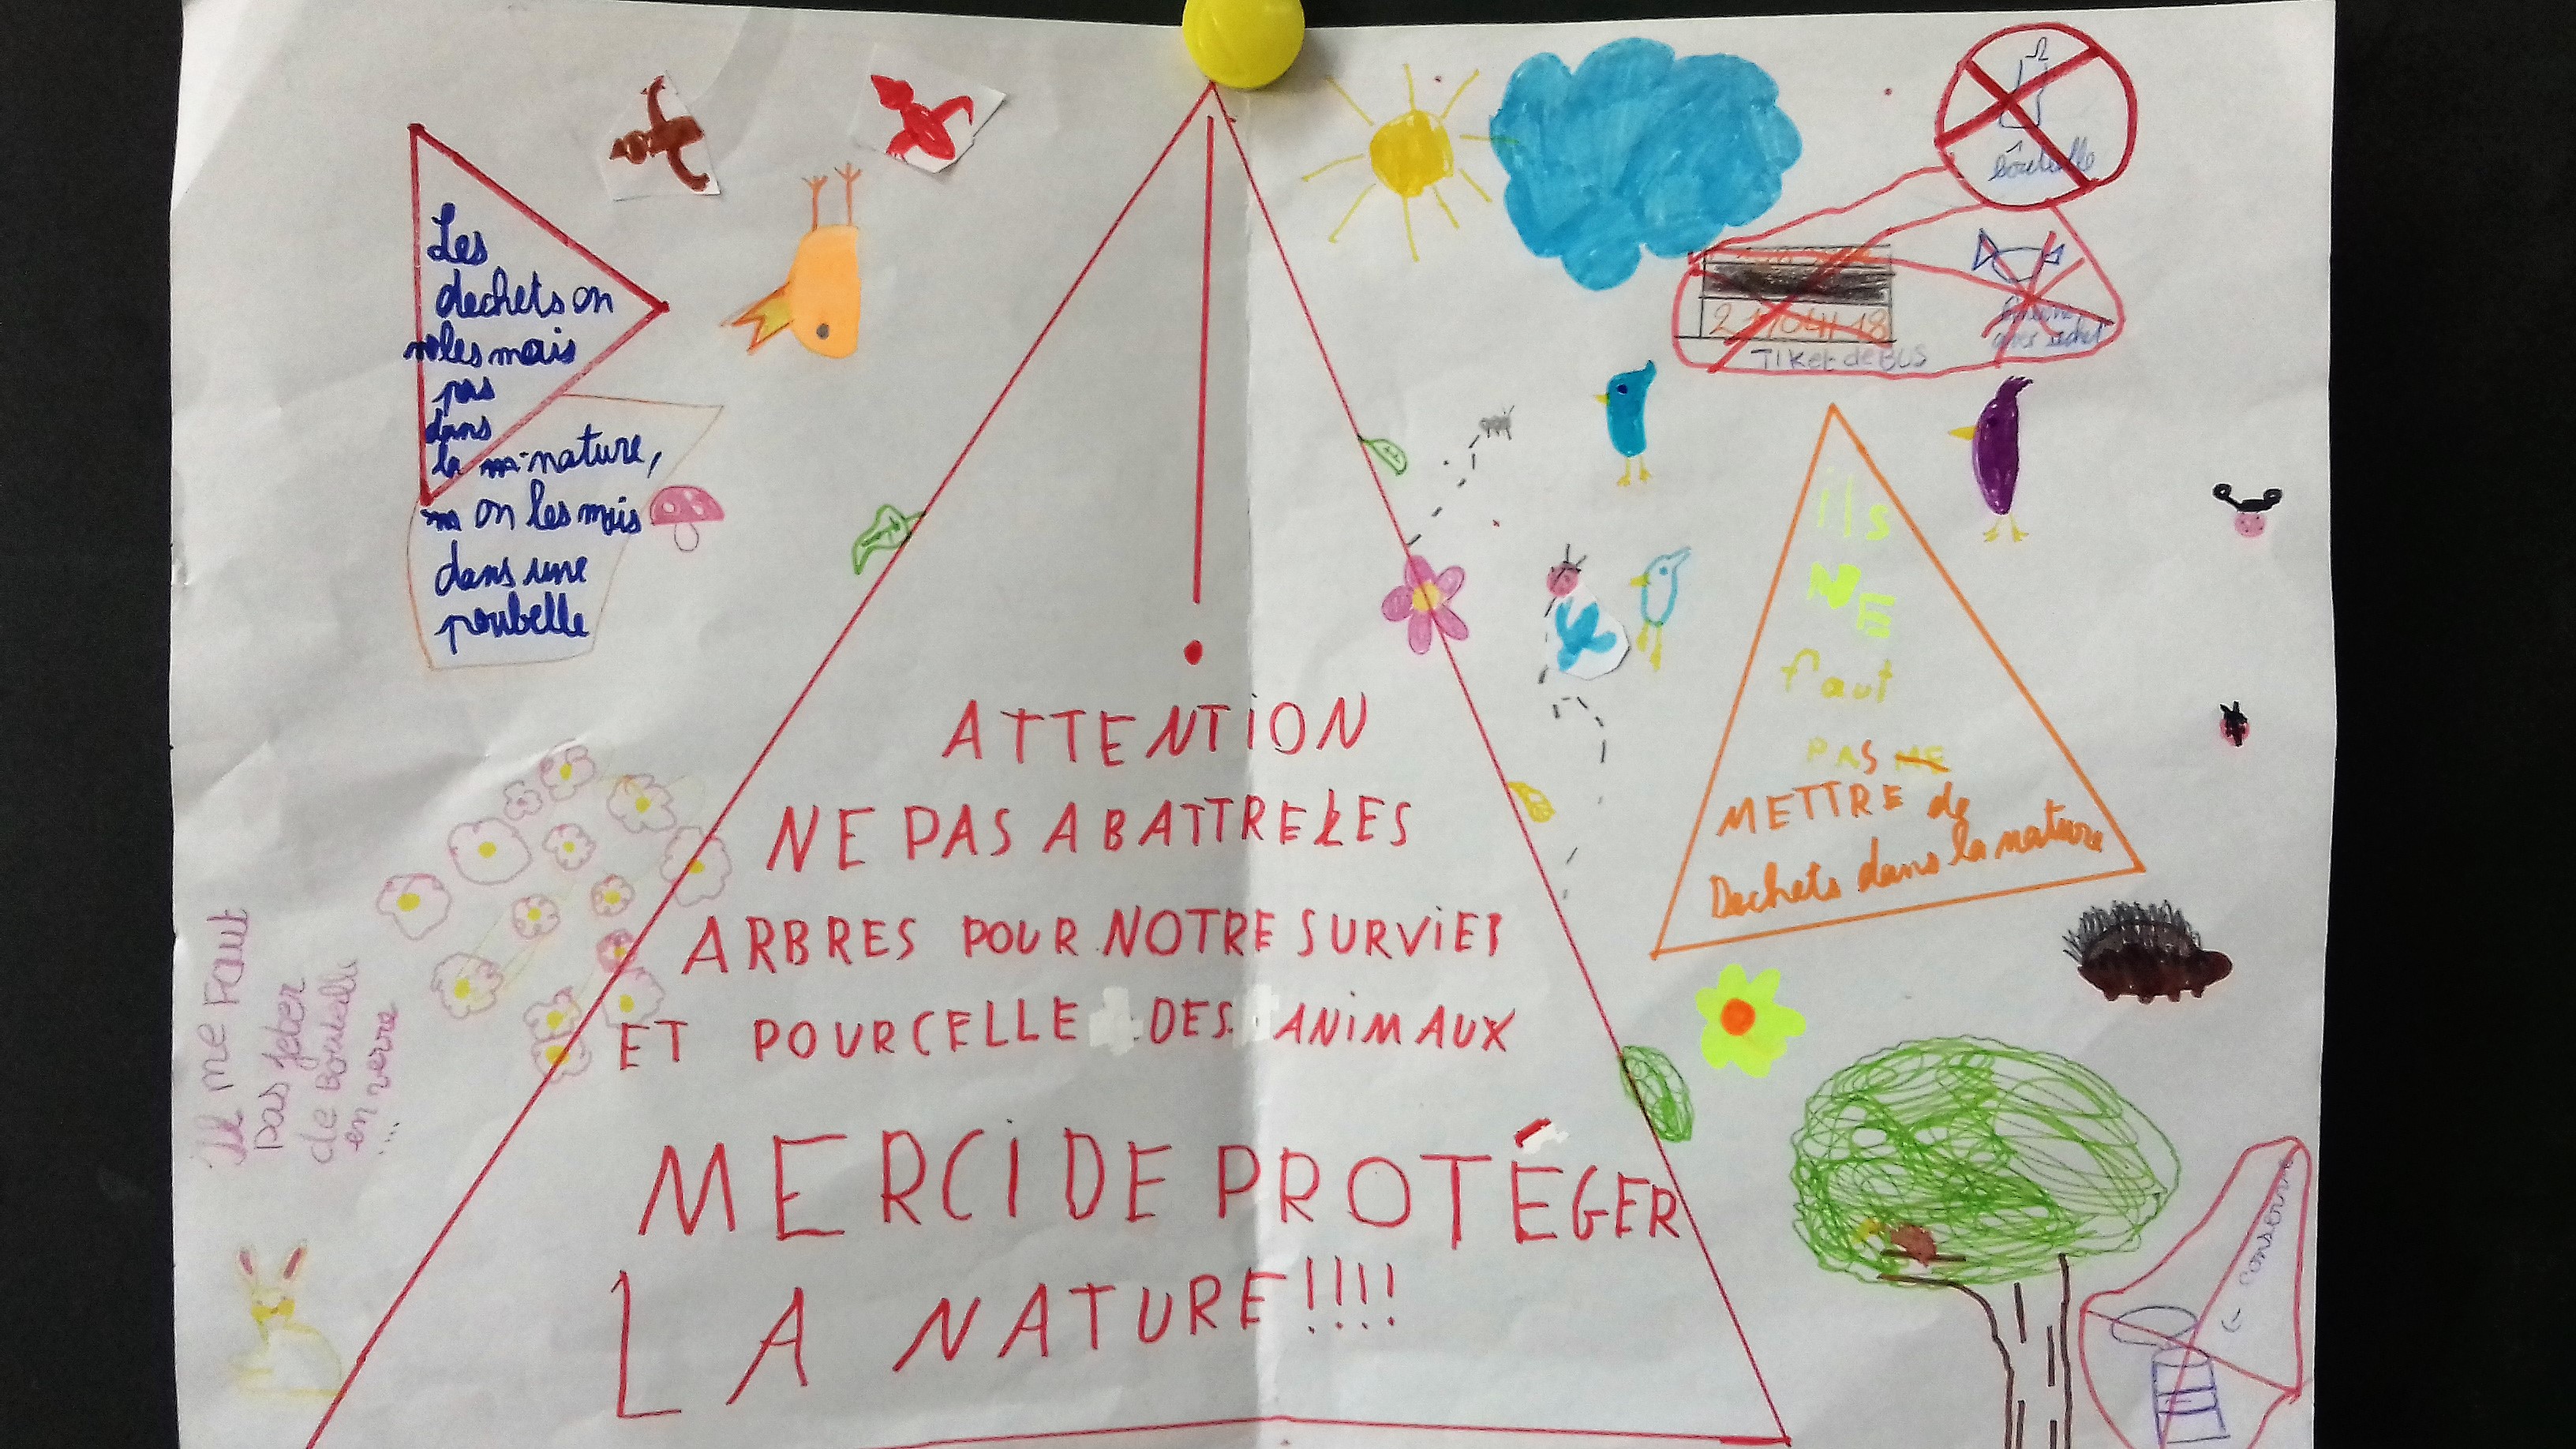 Les
dechets on
les mais
pas
dans
la nature,
on les mais
dans une
poubelle
bouteille
21/04/18
TIKet de BUS
ils
NE
faut
PAS
METTRE de
Dechets dans la nature
ATTENTION
NE PAS ABATTRE LES
ARBRES POUR NOTRE SURVIE
ET POUR CELLE DES ANiMAUX
MERCi DE PROTÉGER
LA NATURE!!!!
il ne Faut
pas jeter
de Bouteille
en verre
...
conserve